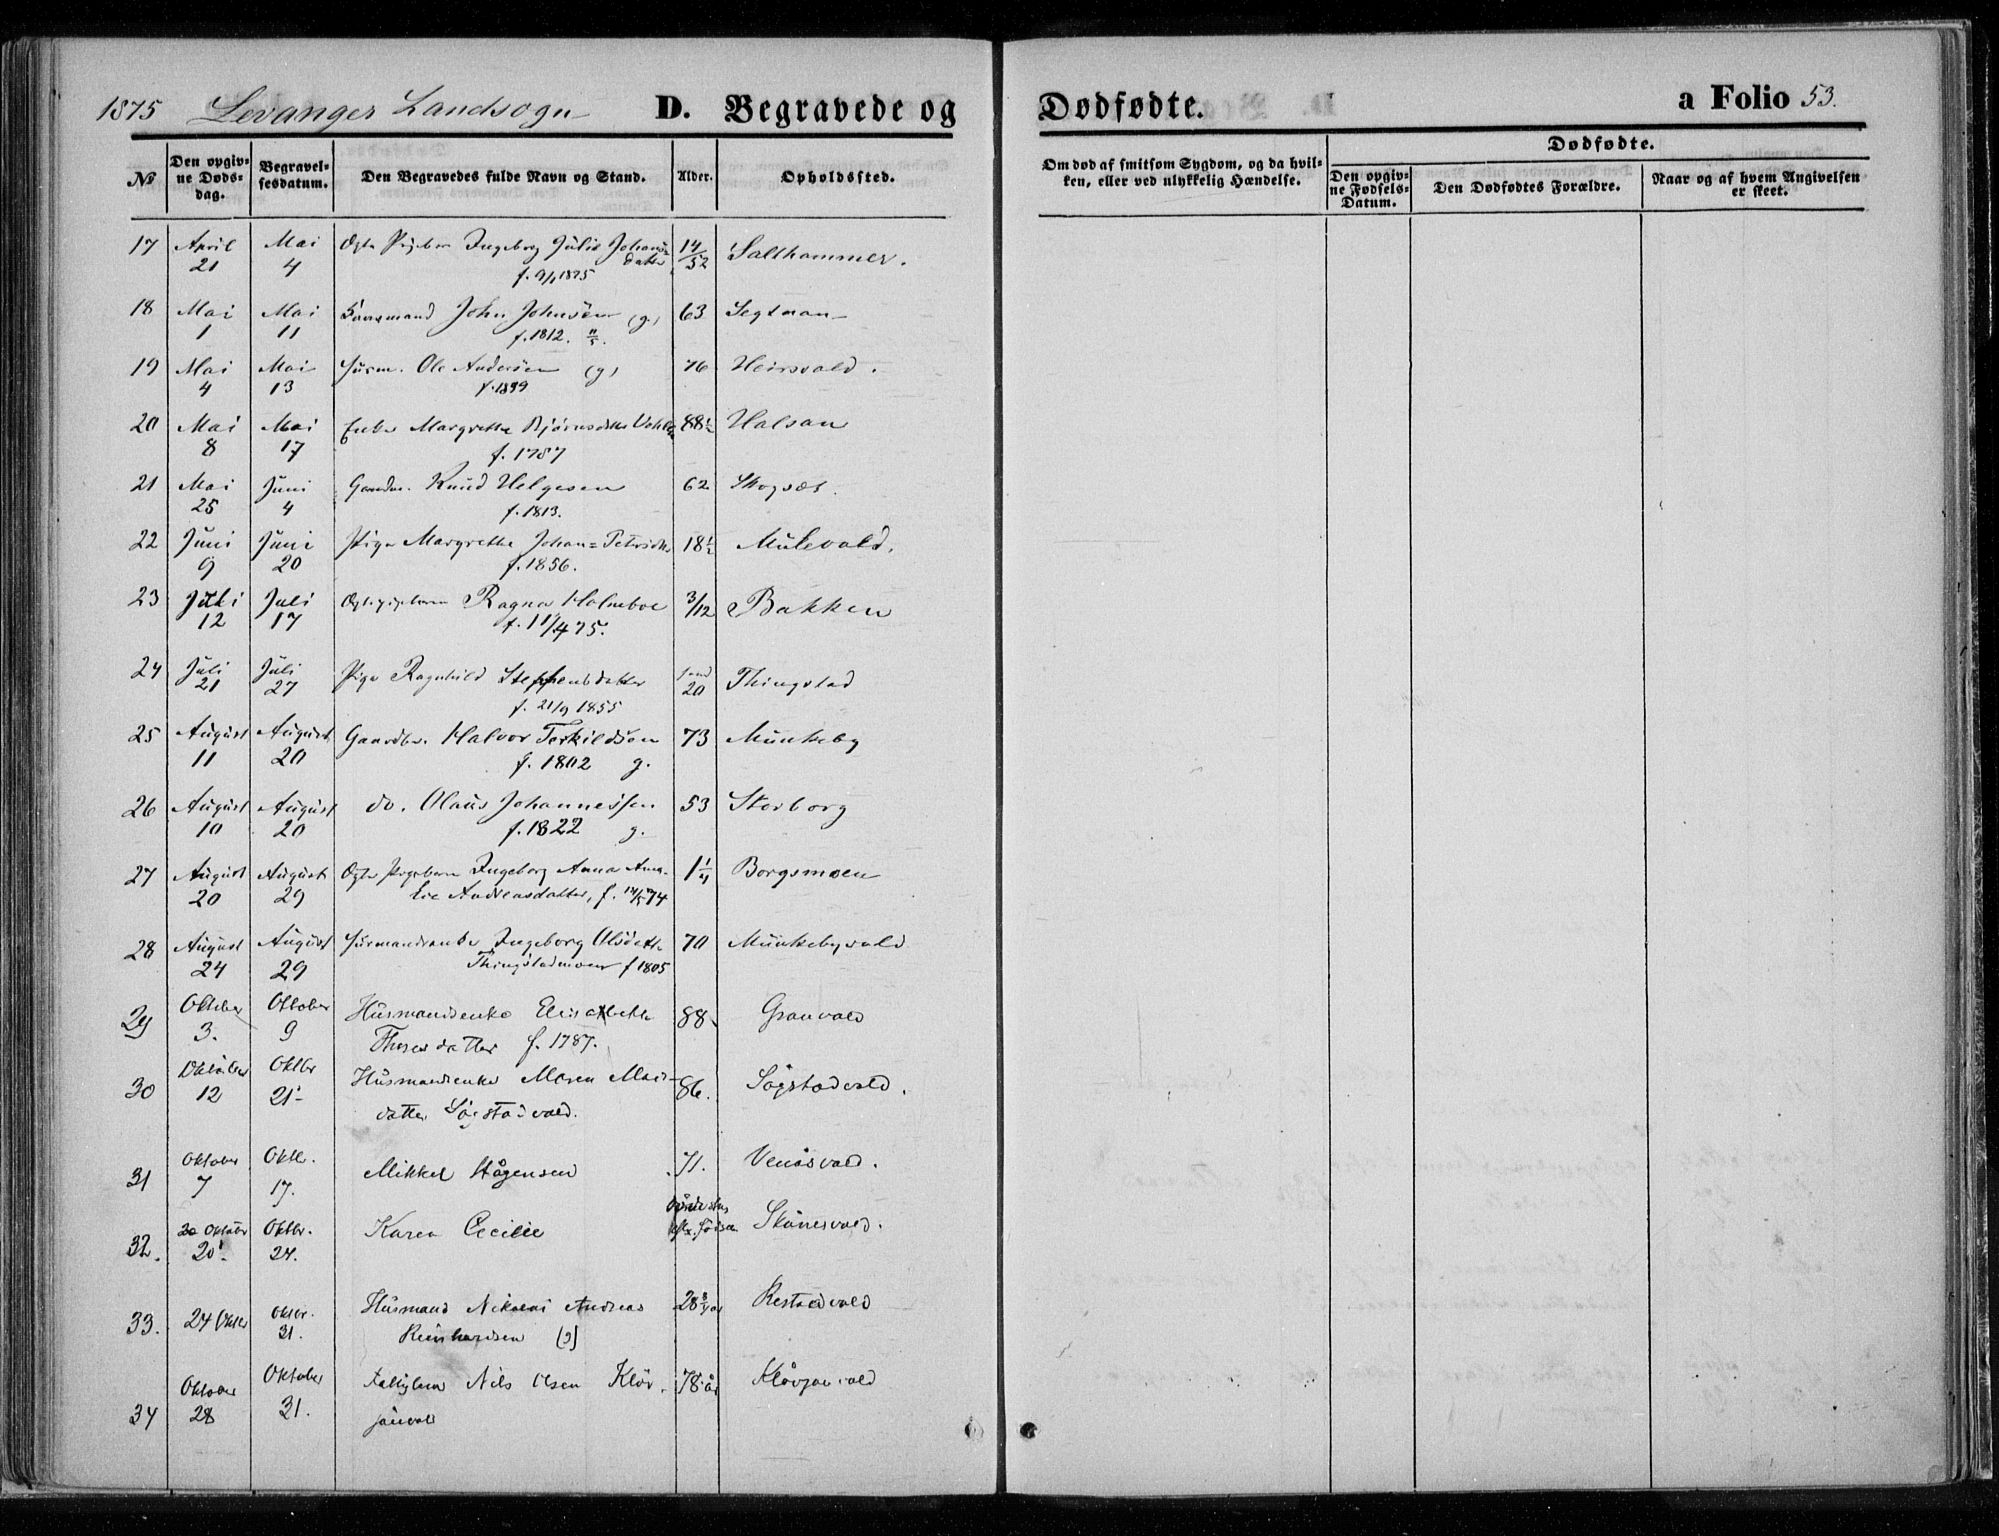 1875 Levanger Landsogn D. Begravede og Dødfødte. a Folio 53.
№
Den opgivne Dødsdag.
Begravelsesdatum.
Den Begravedes fulde Navn og Stand.
Alder.
Opholdssted.
Om død af smitsom Sygdom, og da hvilken, eller ved ulykkelig Hændelse.
Dødfødte.
Den opgivne Fødsels-Datum.
Den Dødfødtes Forældre.
Naar og af hvem Angivelsen er skeet.
17 April Mai Ingeborg Julie Johans= 14/52 Salthammer.
21 4 datter
f. 9/1 1875
18 Mai Mai John Johnsen (g) 63 Segtnan
1 11 f. 1812.
19 Mai Mai Husm. Ole Andersen (g) 76 Heirsvald.
4 13 f. 1799
20 Mai Mai Enke Margrethe Bjørnsdtr 88½ Halsan
8 17 f. 1787
21 Mai Juni Gaardm. Knud Helgesen 62 Skogsæt.
25 4 f. 1813.
22 Juni Juni Pige Margrethe Johan=Petersdtr 18½ Mulevald.
9 20 f. 1856.
23 Juli Juli Ragna Holmboe 3/12 Bakken
12 17 f. 11/4 75.
24 Juli Juli Pige Ragnhild Steffensdatter 20 Thingstad
21 27 f. 21/9 1855
25 August August Gaardbr. Halvor Torkildsen 73 Munkeby
11 20 f. 1802 g.
26 August August do. Olaus Johannessen 53 Storborg
10 20 f. 1822 g.
27 August August Ægte Pigebarn Ingeborg Anna Ama- 1¼ Borgsmoen
20 29 lie Andreasdatter, f. 14/5 74
28 August August Husmandsenke Ingeborg Olsdatter 70 Munkebyvald
24 29 Thingstadmoen f 1805
29 Oktober Oktober Husmandsenke Elisabeth 88 Granvald
3. 9 Thoresdatter f. 1787.
30 Oktober Oktbr Husmandsenke Maren 86. Søgstadvald.
12 21 datter Søgstadvald.
31 Oktober Oktb. Mikkel Hågensen 71. Venåsvald.
7 17.
32. 20 Oktober Oktbr. Karen Cecilie Skånesvald.
20. 24.
33. 24 Oktbr Oktbr. Husmand Nikolai Andreas 28¾ år Restadvald
31. Reinhardsen (g)
34 Oktober Oktober Nils Olsen Kløv- 78 år Kløvjanvald
28 31. janvald